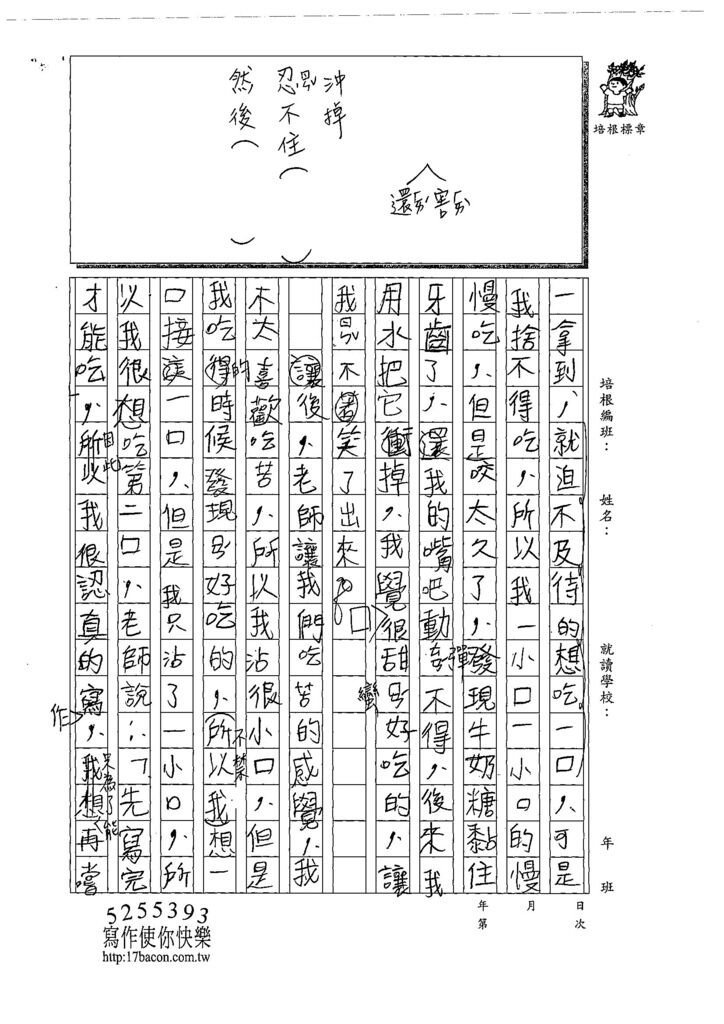 沖掉
忍ㄖㄣˇ不住（　）
然後（　）
還ㄏㄞˊ害ㄏㄞˋ
培根標章
一拿到，就迫不及待的想吃一口，可是
我捨不得吃，所以我一小口一小口的慢
慢吃，但是咬太久了，發現牛奶糖黏住
牙齒了，還我的嘴吧動彈不得，後來我
用水把它衝掉，我覺很甜蠻好吃的，讓
我忍不著笑了出來。
讓後，老師讓我們吃苦的感覺，我
不太喜歡吃苦，所以我沾很小口，但是
我吃得的時候發現蠻好吃的，所以不禁我想一
口接這一口，但是我只沾了一小口，所
以我很想吃第二口，老師說：「先寫完
才能吃，所以因此我很認真的寫作，我想只為了能再嚐
培根編班：
姓名：
就讀學校：
年班
日次
月
年第
5255393
寫作使你快樂
http:17bacon.com.tw